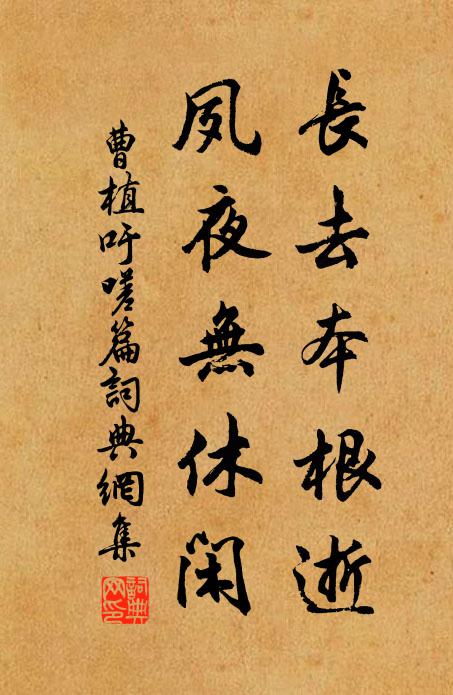 長去本根逝
夙夜無休閑
曹植吁嗟篇詞典網集
詞典網印